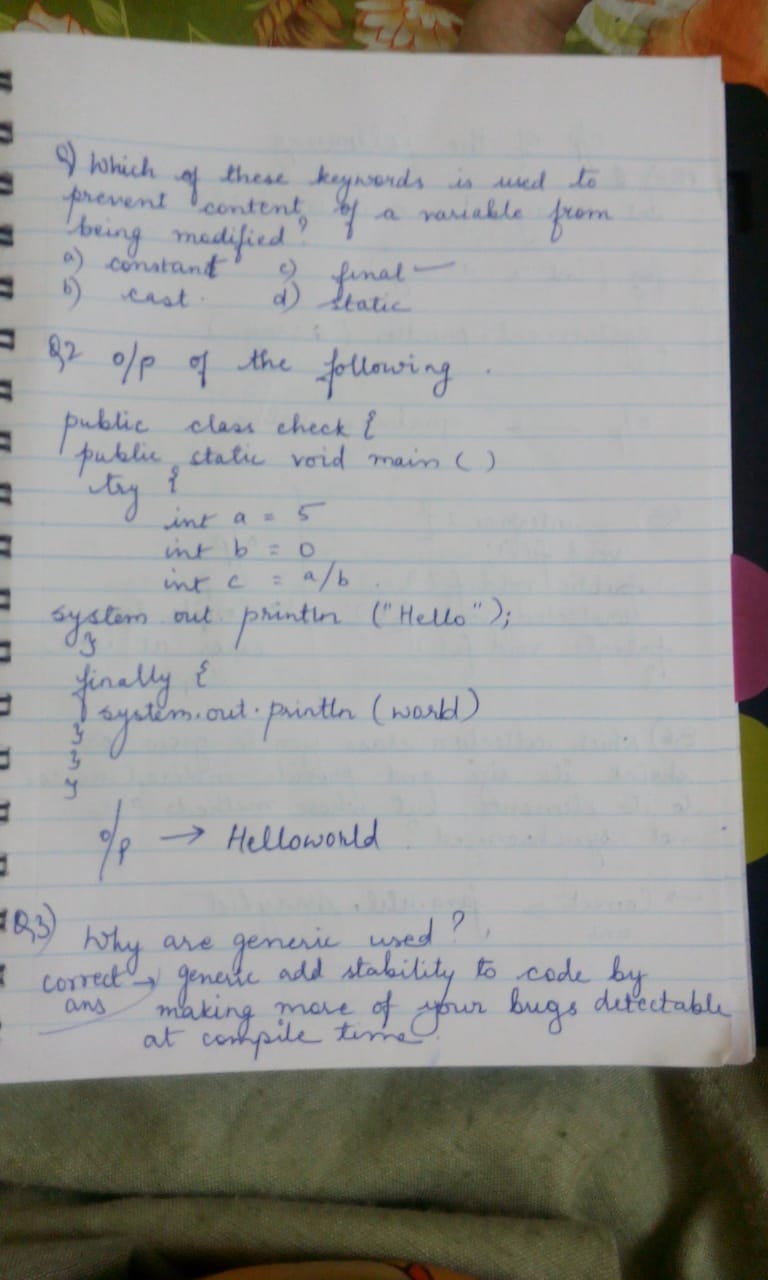 Q) Which of these keywords is used to
prevent content of a variable from
being modified?
a) constant c) final —
b) cast. d) static
Q2 o/p of the following.
public class check {
public static void main ( )
try {
int a = 5
int b = 0
int c = a/b.
system out println ("Hello");
}
finally {
system.out.println (world)
}
}
}
o/p → Helloworld
Q3) Why are generic used?
correct → generic add stability to code by
ans making more of your bugs detectable
at compile time.